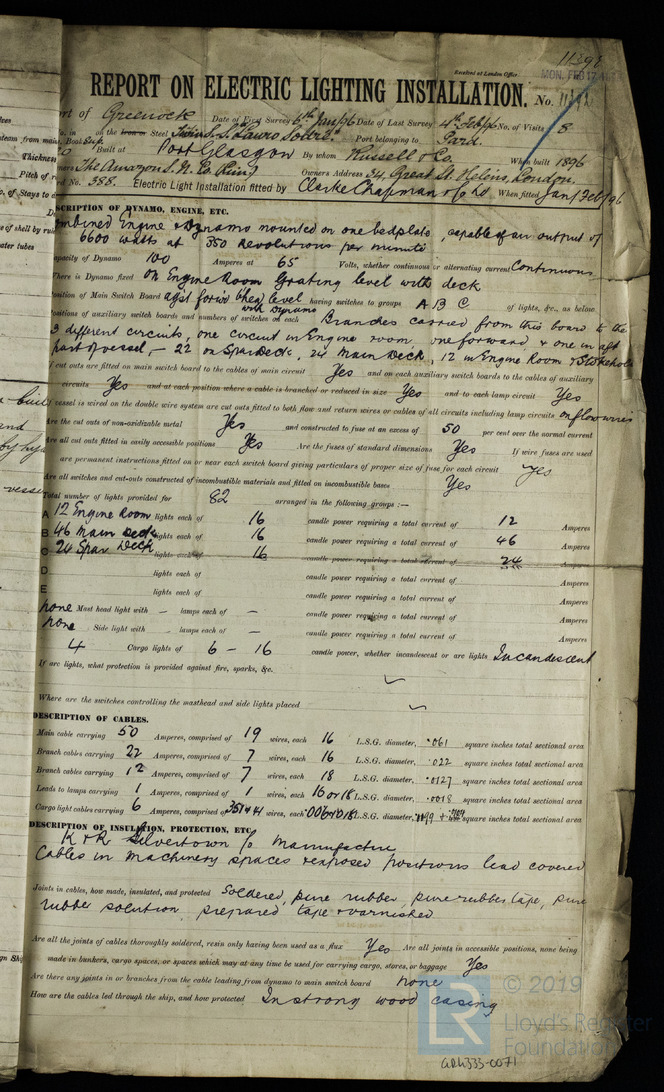 11392
Received at London Office
MON. FEB 17 1896
REPORT ON ELECTRIC LIGHTING INSTALLATION. No. 11392
ort of Greenock Date of First Survey 6th Jan/96 Date of Last Survey 4th Feb/96 No. of Visits 8
on the Iron or Steel S.S. Port belonging to Para.
Built at Port Glasgow By whom Russell & Co. When built 1896
The Amazon S. N. Co. Owners Address 34, Great St Helens, London.
rd No. 358. Electric Light Installation fitted by Clarke Chapman & Co Ld When fitted Jan/Feb/96
SCRIPTION OF DYNAMO, ENGINE, ETC.
ombined Engine & Dynamo mounted on one bedplate, capable of an output of
6600 watts at 350 Revolutions per minute
apacity of Dynamo 100 Amperes at 65 Volts, whether continuous or alternating current Continuous
Where is Dynamo fixed On Engine Room Grating level with deck
Position of Main Switch Board agst forwd bhead level with Dynamo having switches to groups A B C of lights, &c., as below
Positions of auxiliary switch boards and numbers of switches on each Branches carried from this board to the
3 different circuits, one circuit in Engine room, one forward, & one in aft
part of vessel, - 22 on Spar Deck, 24 Main Deck, 12 in Engine Room & Stokehole
If cut outs are fitted on main switch board to the cables of main circuit Yes and on each auxiliary switch boards to the cables of auxiliary
circuits Yes and at each position where a cable is branched or reduced in size Yes and to each lamp circuit Yes
If vessel is wired on the double wire system are cut outs fitted to both flow and return wires or cables of all circuits including lamp circuits on flow wires
Are the cut outs of non-oxidizable metal Yes and constructed to fuse at an excess of 50 per cent over the normal current
Are all cut outs fitted in easily accessible positions Yes Are the fuses of standard dimensions Yes If wire fuses are used
are permanent instructions fitted on or near each switch board giving particulars of proper size of fuse for each circuit Yes
Are all switches and cut-outs constructed of incombustible materials and fitted on incombustible bases Yes
Total number of lights provided for 82 arranged in the following groups :—
A 12 Engine Room lights each of 16 candle power requiring a total current of 12 Amperes
B 46 Main Deck lights each of 16 candle power requiring a total current of 46 Amperes
C 24 Spar Deck lights each of 16 candle power requiring a total current of 24 Amperes
D lights each of candle power requiring a total current of Amperes
E lights each of candle power requiring a total current of Amperes
none Mast head light with - lamps each of - candle power requiring a total current of Amperes
none Side light with - lamps each of - candle power requiring a total current of Amperes
4 Cargo lights of 6 - 16 candle power, whether incandescent or arc lights Incandescent
If arc lights, what protection is provided against fire, sparks, &c.
Where are the switches controlling the masthead and side lights placed
DESCRIPTION OF CABLES.
Main cable carrying 50 Amperes, comprised of 19 wires, each 16 L.S.G. diameter, .061 square inches total sectional area
Branch cables carrying 22 Amperes, comprised of 7 wires, each 16 L.S.G. diameter, .022 square inches total sectional area
Branch cables carrying 12 Amperes, comprised of 7 wires, each 18 L.S.G. diameter, .0127 square inches total sectional area
Leads to lamps carrying 1 Amperes, comprised of 1 wires, each 16 or 18 L.S.G. diameter, .0018 square inches total sectional area
Cargo light cables carrying 6 Amperes, comprised of wires, each L.S.G. diameter, square inches total sectional area
DESCRIPTION OF INSULATION, PROTECTION, ETC.
Silvertown Co Manufacture
Cables in machinery spaces & exposed positions lead covered
Joints in cables, how made, insulated, and protected Soldered, pure rubber, pure rubber tape, pure
rubber solution prepared tape & varnished
Are all the joints of cables thoroughly soldered, resin only having been used as a flux Yes Are all joints in accessible positions, none being
made in bunkers, cargo spaces, or spaces which may at any time be used for carrying cargo, stores, or baggage Yes
Are there any joints in or branches from the cable leading from dynamo to main switch board none
How are the cables led through the ship, and how protected In strong wood casing
© 2019
Lloyd's Register
Foundation
LR
GRK333-0071